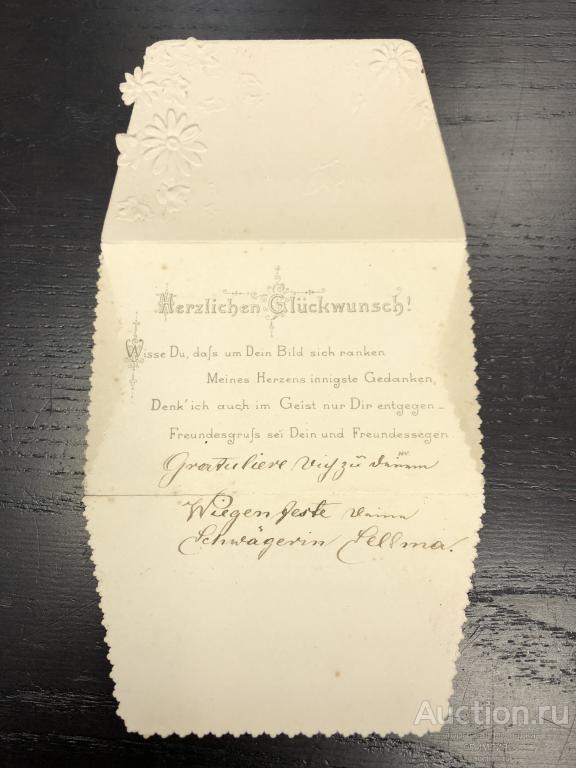 Herzlichen Glückwunsch!
Wisse Du, daſs um Dein Bild sich ranken
Meines Herzens innigste Gedanken,
Denk' ich auch im Geist nur Dir entgegen _
Freundesgruſs sei Dein und Freundessegen
Gratuliere Dich zu deinem
Wiegenfeste Deine
Schwägerin Sellma.
Auction.ru